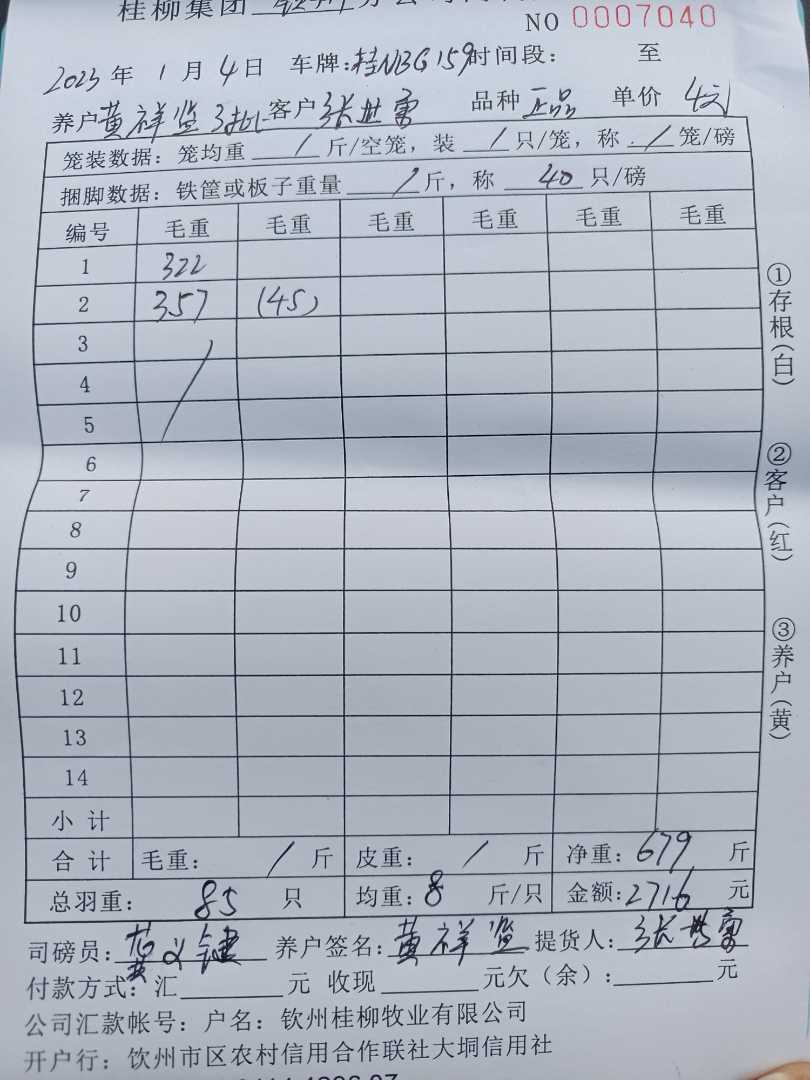 桂柳集团 钦州分公司
NO 0007040
2023年1月4日 车牌:桂NBG159时间段: 至
养户黄祥监3批 客户张世富 品种正品 单价4元
笼装数据:笼均重 / 斤/空笼,装 / 只/笼,称 / 笼/磅
捆脚数据:铁筐或板子重量 / 斤,称 40 只/磅
编号 毛重 毛重 毛重 毛重 毛重 毛重
1 322
2 357 (45)
3
4
5
6
7
8
9
10
11
12
13
14
小计
合计 毛重: / 斤 皮重: / 斤 净重:679 斤
总羽重:85 只 均重:8 斤/只 金额:2716元
司磅员:黄义键 养户签名:黄祥监 提货人:张世富
付款方式:汇 元 收现 元欠(余): 元
公司汇款帐号:户名:钦州桂柳牧业有限公司
开户行:钦州市区农村信用合作联社大垌信用社
①存根(白) ②客户(红) ③养户(黄)